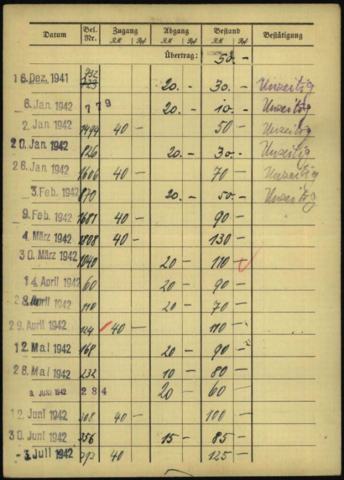 Datum Bel. Nr. Zugang RM Rpf Abgang RM Rpf Bestand RM Rpf Bestätigung
Übertrag: 50.-
16. Dez. 1941 20.- 30.-
6. Jan 1942 779 20.- 10.-
2. Jan 1942 1494 40- 50-
20. Jan 1942 826 20.- 30.-
26. Jan 1942 1606 40- 70-
3. Feb. 1942 870 20.- 50.-
9. Feb. 1942 1681 40- 90-
4. März 1942 1808 40- 130-
30. März 1942 1040 20- 110-
14. April 1942 60 20- 90-
28. April 1942 110 20- 70-
29. April 1942 124 40- 110-
12. Mai 1942 168 20- 90-
26. Mai 1942 232 10- 80-
9. Juni 1942 284 20- 60-
12. Juni 1942 308 40- 100-
30. Juni 1942 356 15- 85-
-3. Juli 1942 393 40 125-